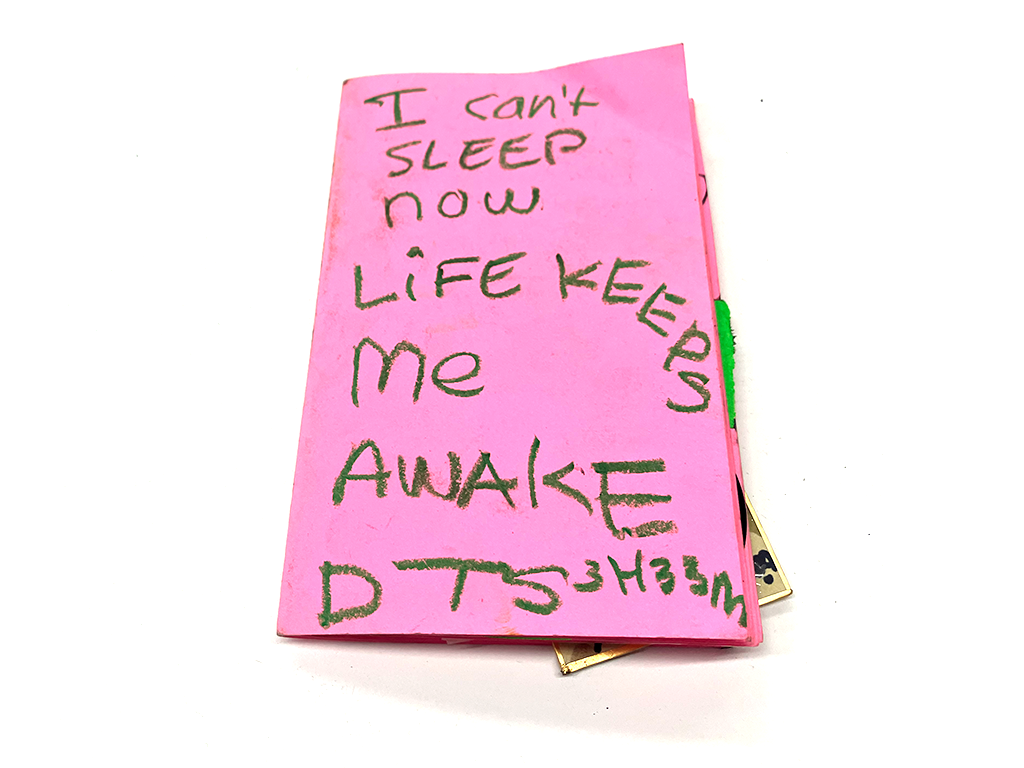 I can't
SLEEP
now
LiFE KEEPS
Me
AWAKE
DTS3H33M